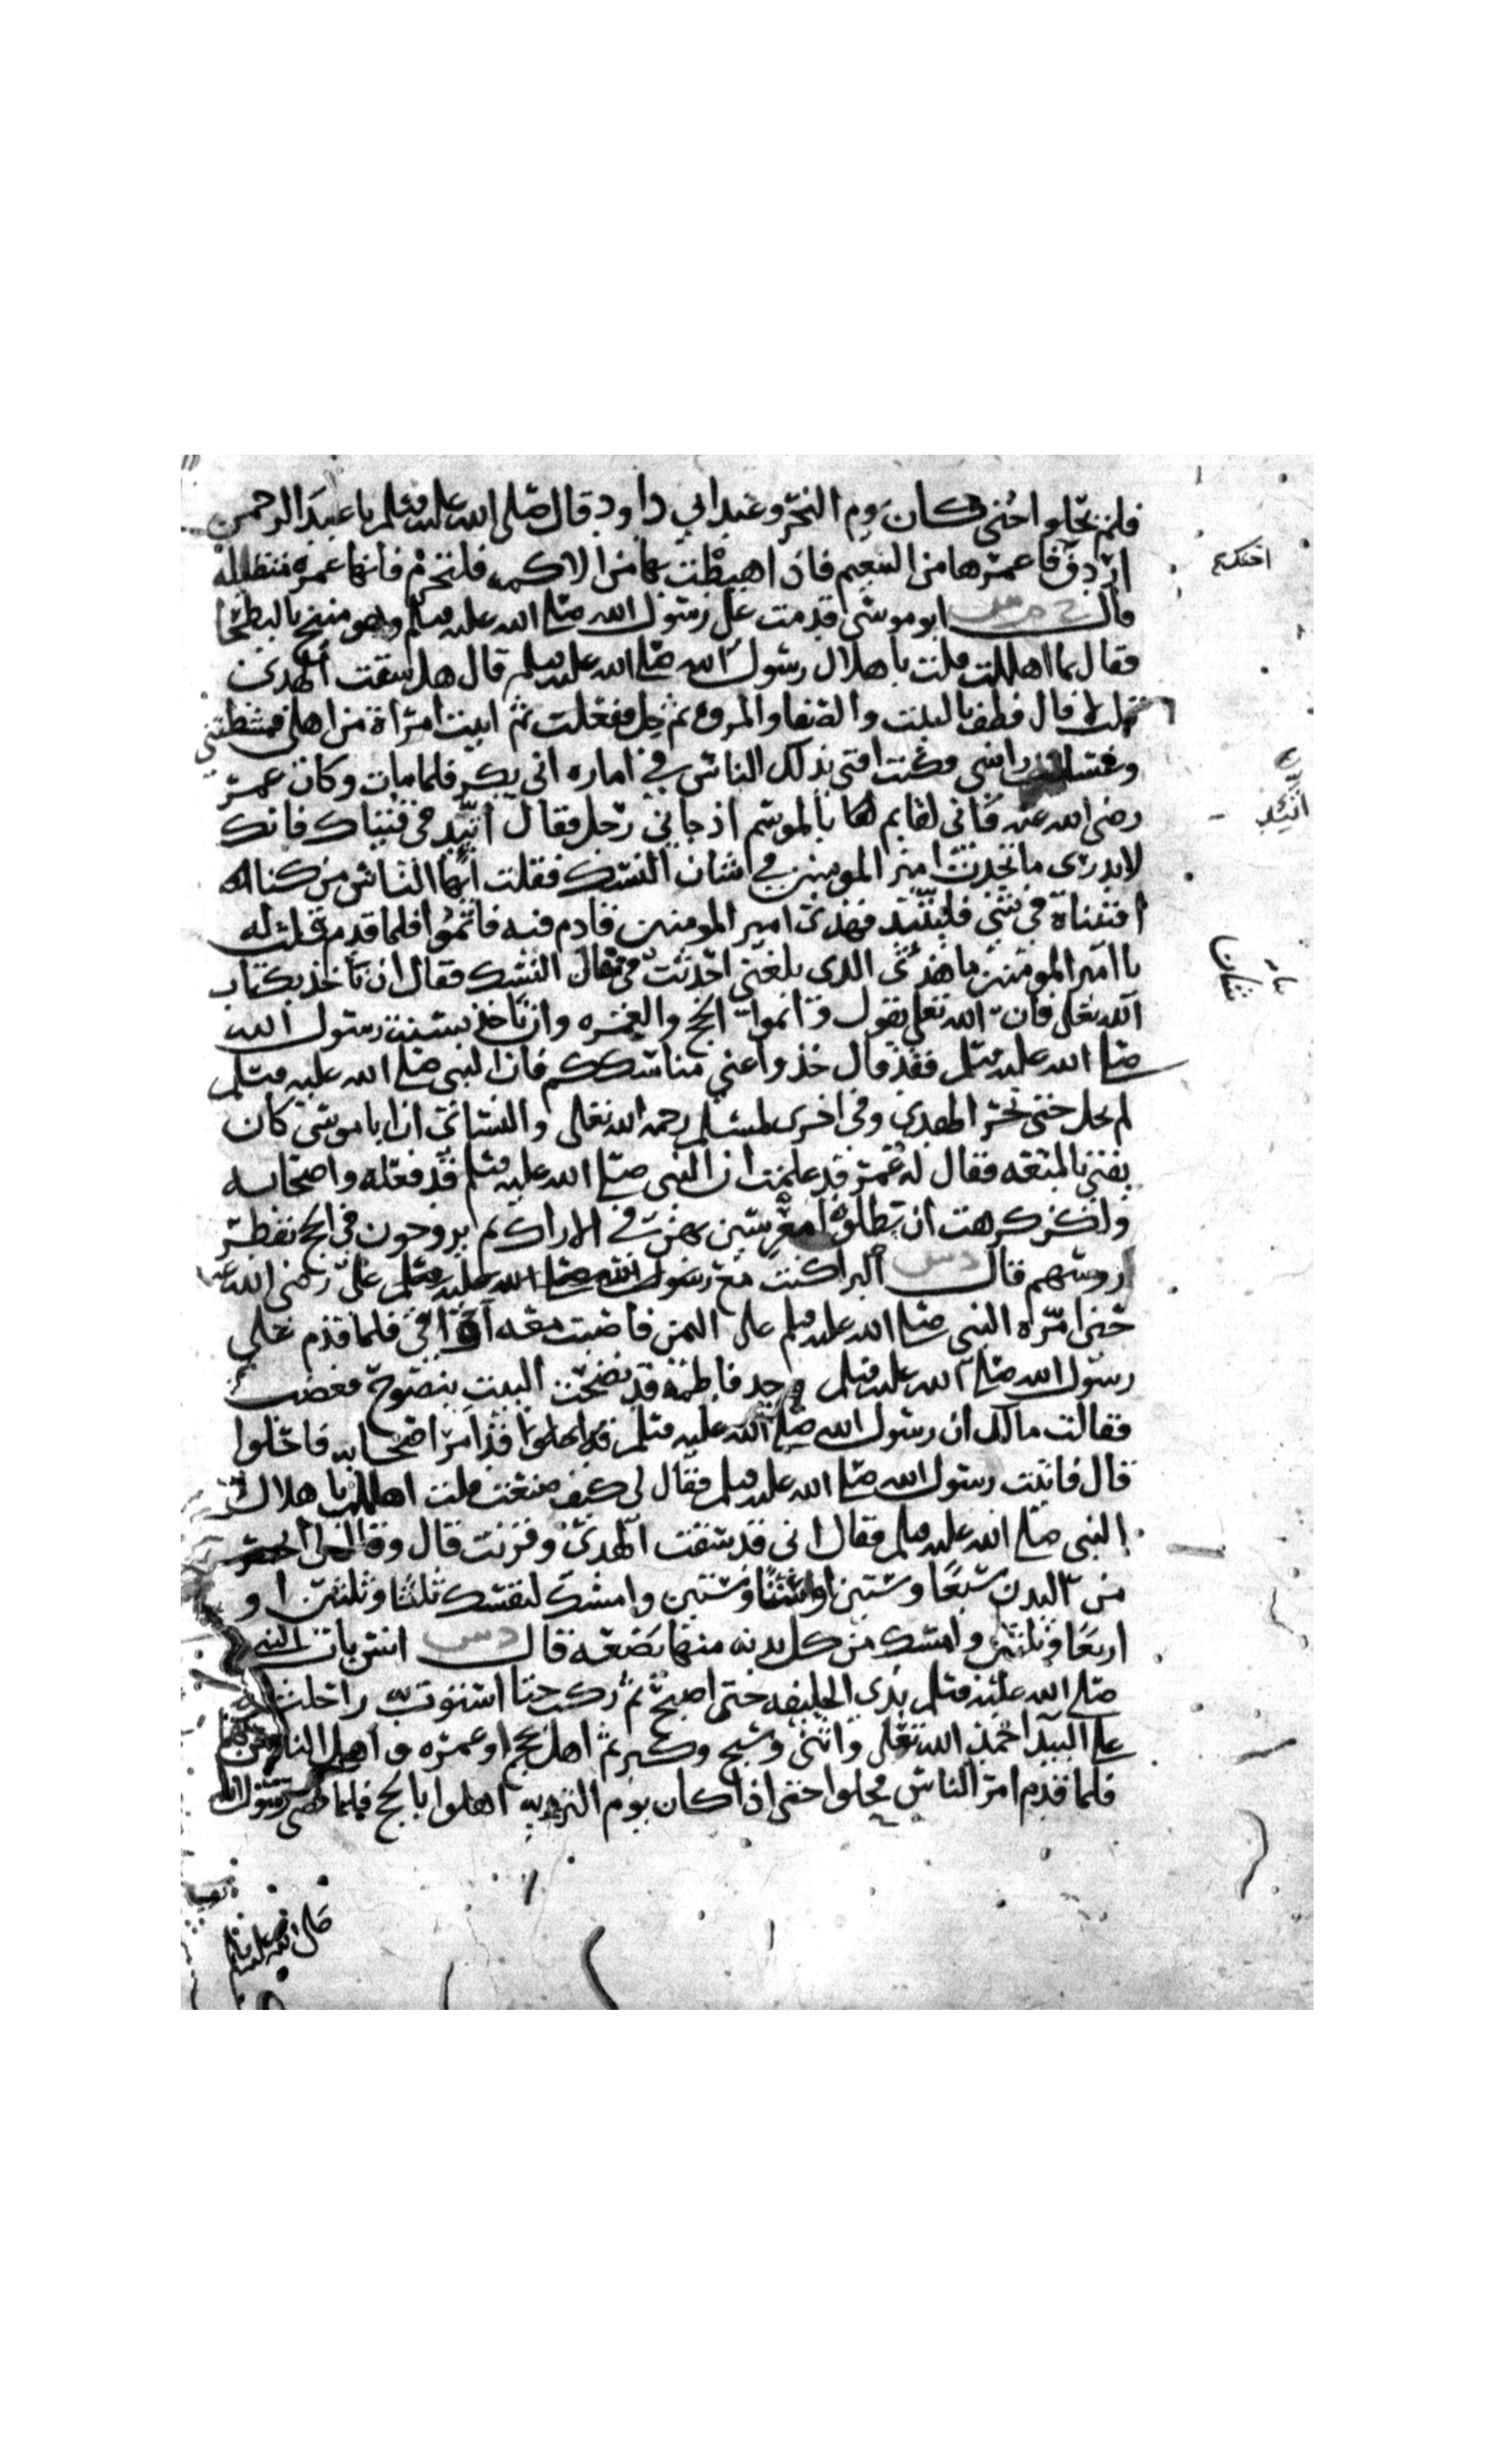 فلم يحلوا حتى كان يوم النحر وعند ابي داود قال صلى الله عليه وسلم يا عبد الرحمن
اردف فاعمرها من التنعيم فاذا هبطت بها من الاكمه فلتحرم فانها عمرة متقبلة
قال خ م س ابو موسى قدمت على رسول الله صلى الله عليه وسلم وهو منيخ بالبطحا
فقال بما اهللت قلت باهلال رسول الله صلى الله عليه وسلم قال هل سقت الهدى
قلت لا قال فطف بالبيت والصفا والمروه ثم حل ففعلت ثم اتيت امراة من اهلى فمشطتني
وغسلت راسي فكنت افتى بذلك الناس في اماره ابي بكر فلما مات وكان عمر
رضى الله عنه فانى لقايم لها بالموسم اذ جاني رجل فقال اتيد في فتياك فانك
لا تدرى ما يحدث امير المومنين في شان النسك فقلت ايها الناس من كنا
افتيناه في شي فليتيد فهذى امير المومنين قادم فيه فاتموا فلما قدم قلت له
يا امير المومنين ما هذى الذى بلغني احدثت في شان النسك فقال ان تاخذ بكتاب
الله تعلى فان الله تعلى يقول واتموا الحج والعمره وان تاخذ بسنة رسول الله
صلى الله عليه وسلم فقد قال خذوا عني مناسككم فان النبي صلى الله عليه وسلم
لم يحل حتى نحر الهدى وفي اخرى لمسلم رحمه الله تعلى والنسائي ان ابا موسى كان
يفتي بالمتعه فقال له عمر قد علمت ان النبي صلى الله عليه وسلم قد فعله واصحابه
ولكن كرهت ان يظلوا معرسين بهن في الاراك ثم يروحون في الحج تقطر
روسهم قال د س البرا كنت مع رسول الله صلى الله عليه وسلم على رضى الله عنه
حين امره النبي صلى الله عليه وسلم على اليمن فاصبت معه اواقي فلما قدم على
رسول الله صلى الله عليه وسلم وجد فاطمة قد نضحت البيت بنضوح فغضب
فقالت مالك ان رسول الله صلى الله عليه وسلم قد امر اصحابه فاحلوا
قال فاتيت رسول الله صلى الله عليه وسلم فقال لى كيف صنعت قلت اهللت باهلال
النبي صلى الله عليه وسلم فقال انى قد سقت الهدى وقرنت قال وقال لى انحر
من البدن سبعا وستين او ستا وستين وامسك لنفسك ثلثا وثلثين او
اربعا وثلثين وامسك من كل بدنه منها بضعه قال د س انس بات النبي
صلى الله عليه وسلم بذى الحليفه حتى اصبح ثم ركب حتا استوت به راحلته
على البيدا حمد الله تعلى واثنى وسبح وكبر ثم اهل بحج وعمره واهل الناس بهما
فلما قدم امر الناس فحلوا حتى اذا كان يوم الترويه اهلوا بالحج فلما قضى رسول الله
اتيد
شان
صلى الله عليه وسلم